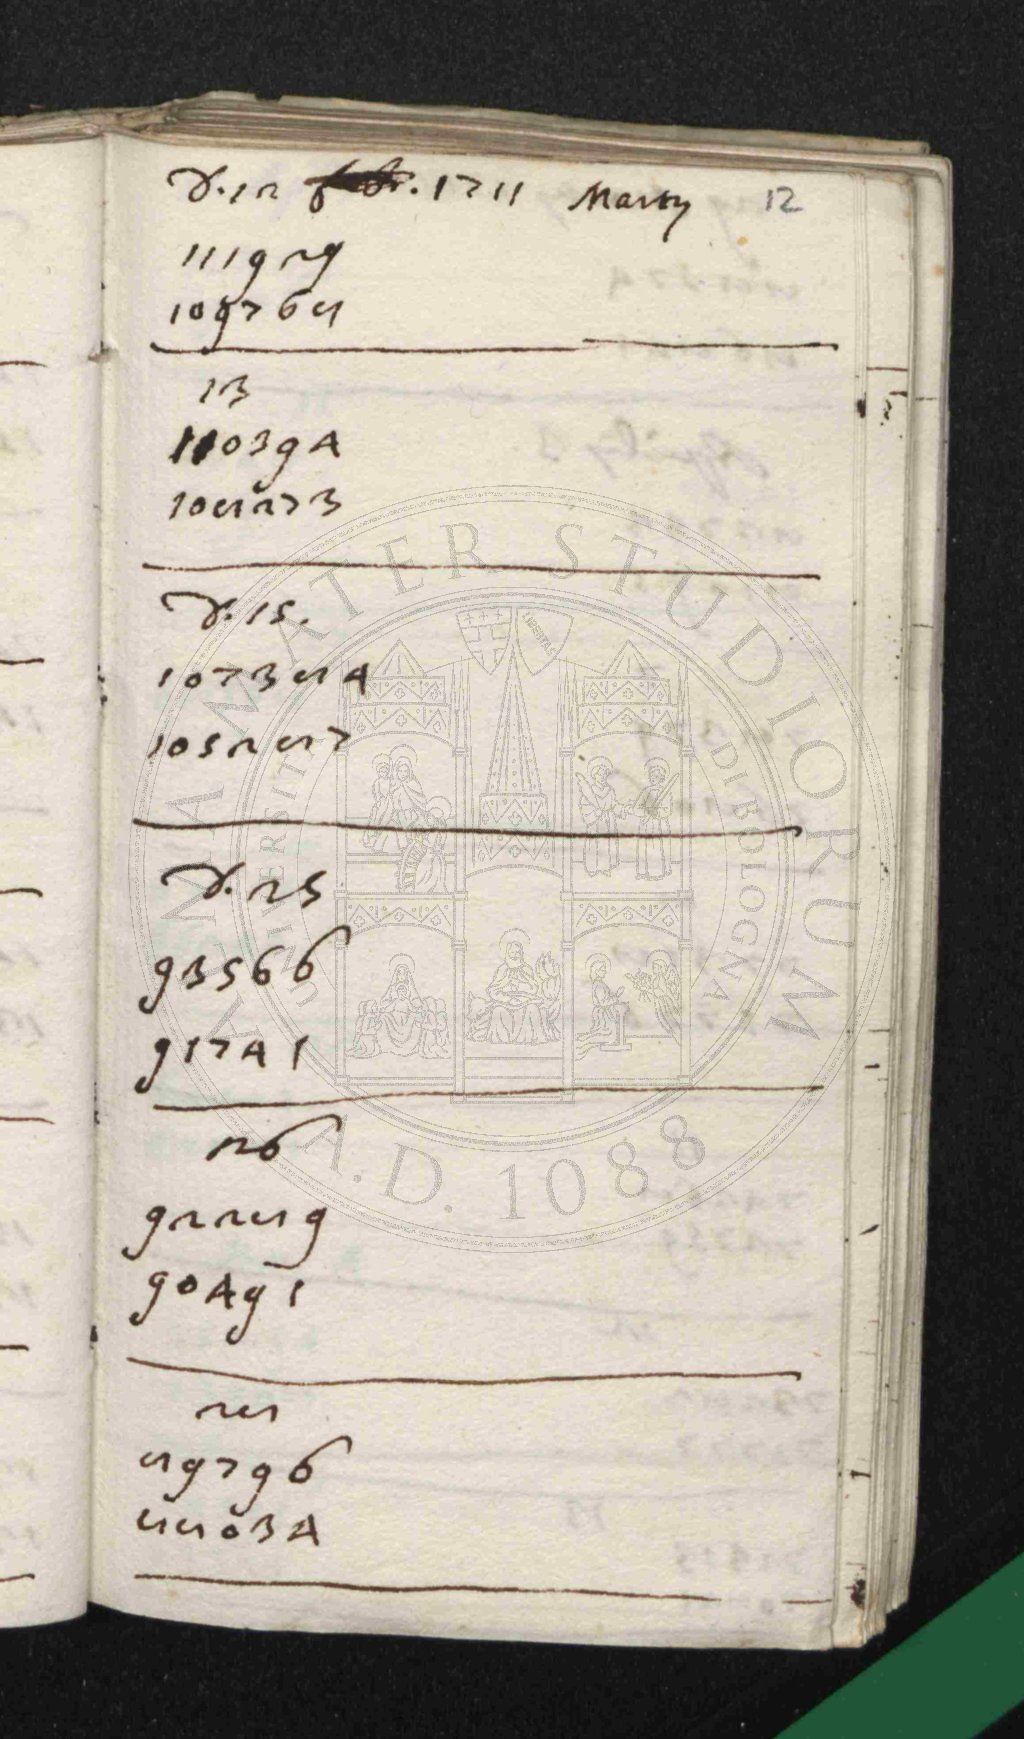 D. 12 febr. 1711 Marty 12
111929
109768
13
110394
108273
D. 15.
107384
105287
D. 25
93566
91741
26
92289
90491
28
89796
88034
ALMA MATER STUDIORUM
UNIVERSITÀ DI BOLOGNA
A.D. 1088